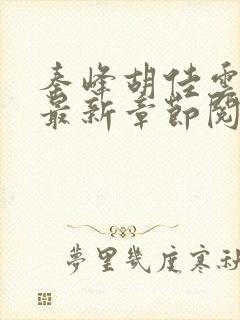 秦峰胡佳云
最新章節閱
夢里幾度寒秋